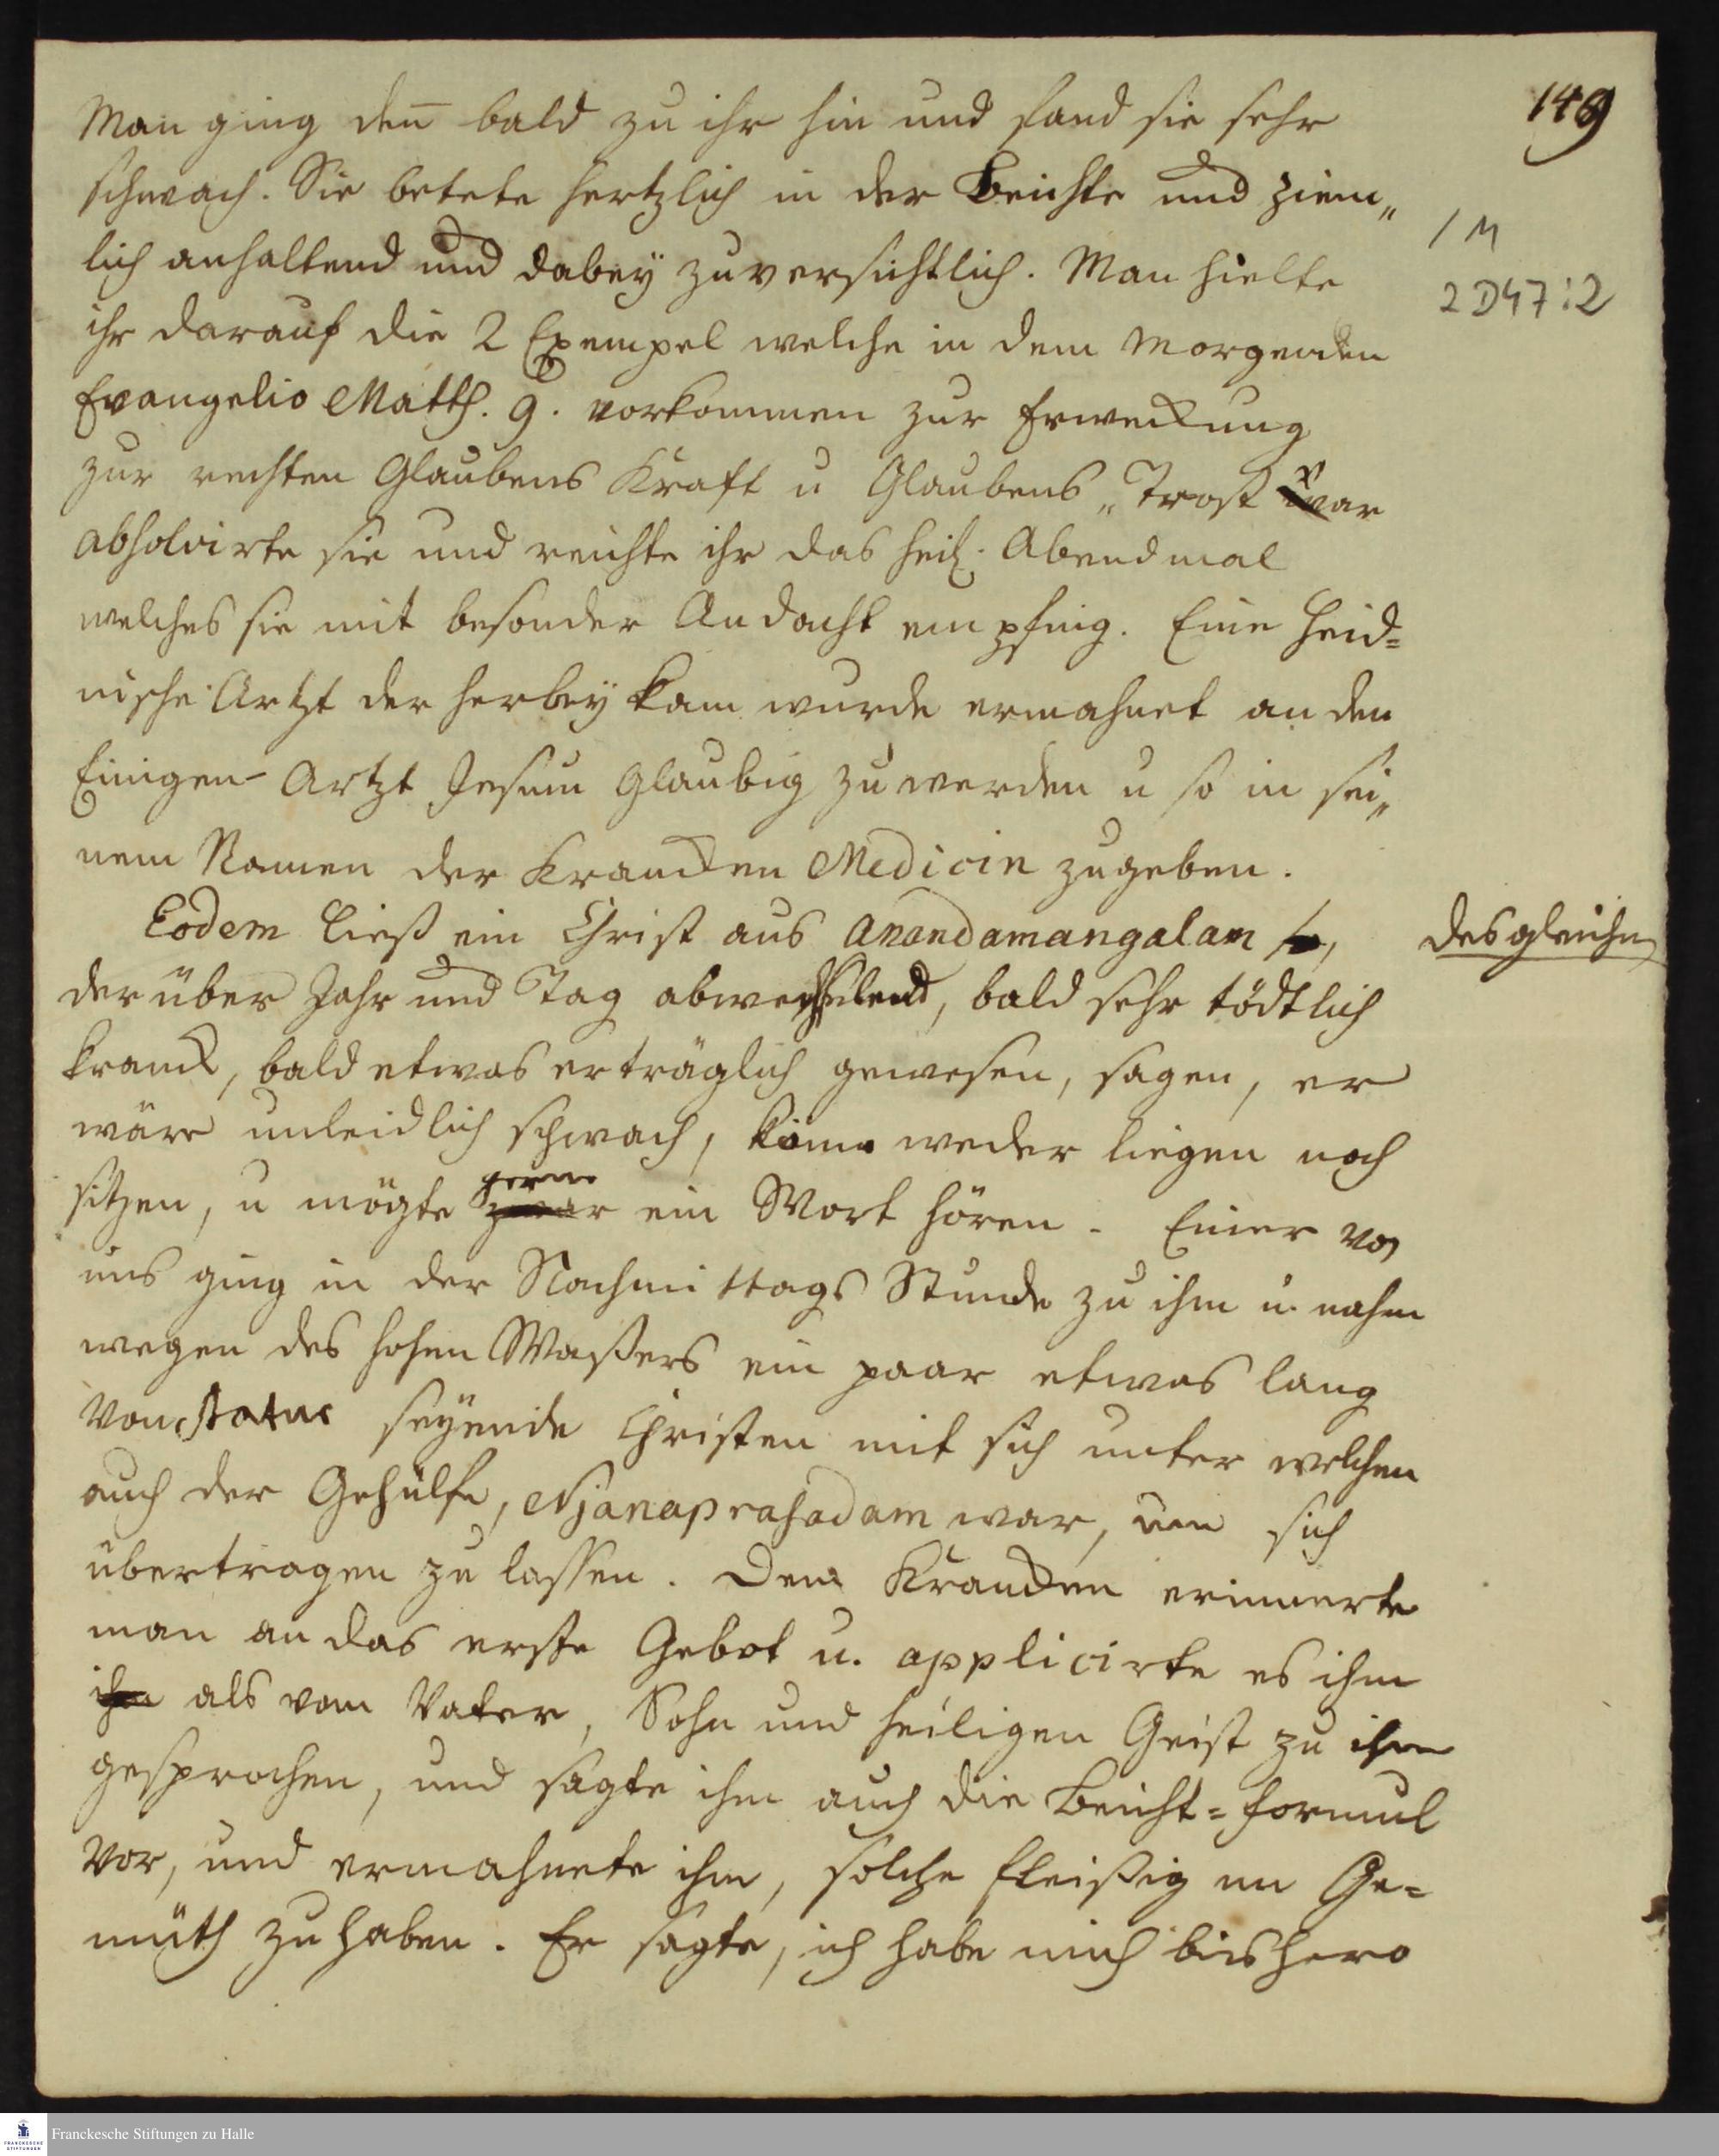 149
Man ging den̅ bald zu ihr hin und fand sie sehr
schwach. Sie betete hertzlich in der Beichte und ziem„
1 M
lich anhaltend und dabey zuversichtlich. Man hielte
2 D47:2
ihr darauf die 2 Exempel welche in dem Morgenden
Evangelio Matth. 9. vorkommen zur Erweckung
zur rechten Glaubens Krafft u Glaubens„Trost vor
absolvirte sie und reichte ihr das heil. Abendmal
welches sie mit besonder Andacht empfing. Eine Heid=
nische Artzt der herbey kam wurde ermahnet an den
Einigen Artzt Jesum Glaubig zu werden u so in sei„
nem Namen der Krancken Medicin zugeben.
Eodem ließ ein Christ aus Anandamangalam,
desgleichen
der über Jahr und Tag abwechselend, bald sehr tödtlich
kranck, bald etwas erträglich gewesen, sagen, er
wäre unleidlich schwach, könne weder liegen noch
sitzen, u mögte gerne ein Wort hören. Einer von
uns ging in der Nachmittags Stunde zu ihm u. nahm
wegen des hohen Waßers ein paar etwas lang
von statur seyende Christen mit sich unter welchen
auch der Gehülfe, Njanaprasadam war, um sich
übertragen zu lassen. Dem Krancken erinnerte
man an das erste Gebot u. applicirte es ihm
ihm als vom Vater, Sohn und heiligen Geist zu ihm
gesprochen, und sagte ihm auch die Beicht=formul
vor, und ermahnete ihm, solche fleißig im Ge=
müth zu haben. Er sagte, ich habe mich bishero
Franckesche Stiftungen zu Halle